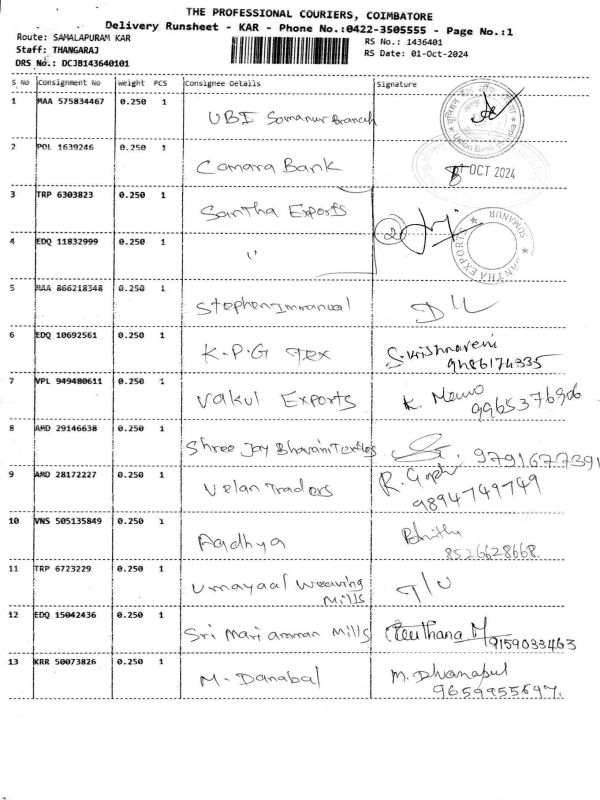 THE PROFESSIONAL COURIERS, COIMBATORE
Delivery Runsheet - KAR - Phone No.:0422-3505555 - Page No.:1
Route: SAMALAPURAM KAR
RS No.: 1436401
Staff: THANGARAJ
RS Date: 01-Oct-2024
DRS No.: DCJB143640101
S No Consignment No Weight PCS Consignee Details Signature
1 MAA 575834467 0.250 1 UBI Somanur Branch
2 POL 1639246 0.250 1 Canara Bank OCT 2024
3 TRP 6303823 0.250 1 Santha Exports 2
SANTHA EXPORTS ★ SOMANUR ★
4 EDQ 11832999 0.250 1 "
5 MAA 866218348 0.250 1 Stephen Immanual
6 EDQ 10692561 0.250 1 K.P.G Tex S. Krishnaveni
9486174335
7 VPL 949480611 0.250 1 Vakul Exports K.
9965376906
8 AMD 29146638 0.250 1 Shree Jay Bhavani Textiles 9791677391
9 AMD 28172227 0.250 1 Velan Traders R.
9894749749
10 VNS 505135849 0.250 1 Aadhya
8526628668.
11 TRP 6723229 0.250 1 Umayaal Weaving
Mills
12 EDQ 15042436 0.250 1 Sri Mariamman Mills 9159033463
13 KRR 50073826 0.250 1 M. Danabal M. Dhanapal
9659955697.